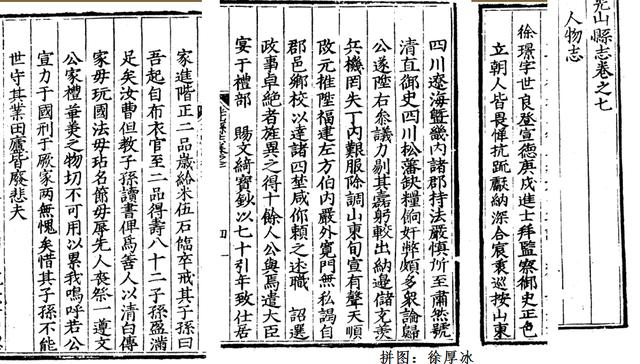 光山縣志卷之七
人物志
徐璟字世良登宣德庚戌進士拜監察御史正色
立朝人皆畏憚抗疏獻納深合宸衷巡按山東
四川遼海曁畿内諸郡持法嚴愼所至肅然號
清直御史四川松藩缺糧餉奸弊頗多衆論歸
公遂陞右叅議力剔其蠹躬較出納邊儲克羨
兵機罔失丁内艱服除調山東旬宣有聲天順
改元推陞福建左方伯内嚴外寬門無私謁自
郡邑鄉校以達諸四埜咸仰賴之述職　詔選
政事卓絶者旌異之得十餘人公與焉遣大臣
宴于禮部　賜文綺寶鈔以七十引年致仕居
家進階正二品歲給米伍石臨卒戒其子孫曰
吾起自布衣官至二品得壽八十二子孫盈滿
足矣汝曹但教子孫讀書俾爲善人以清白傳
家毋玩國法毋玷名節毋辱先人喪祭一遵文
公家禮華美之物切不可用以累我嗚呼若公
宣力于國刑于厥家兩無愧矣惜其子孫不能
世守其業田廬皆廢悲夫
拼图：徐厚冰